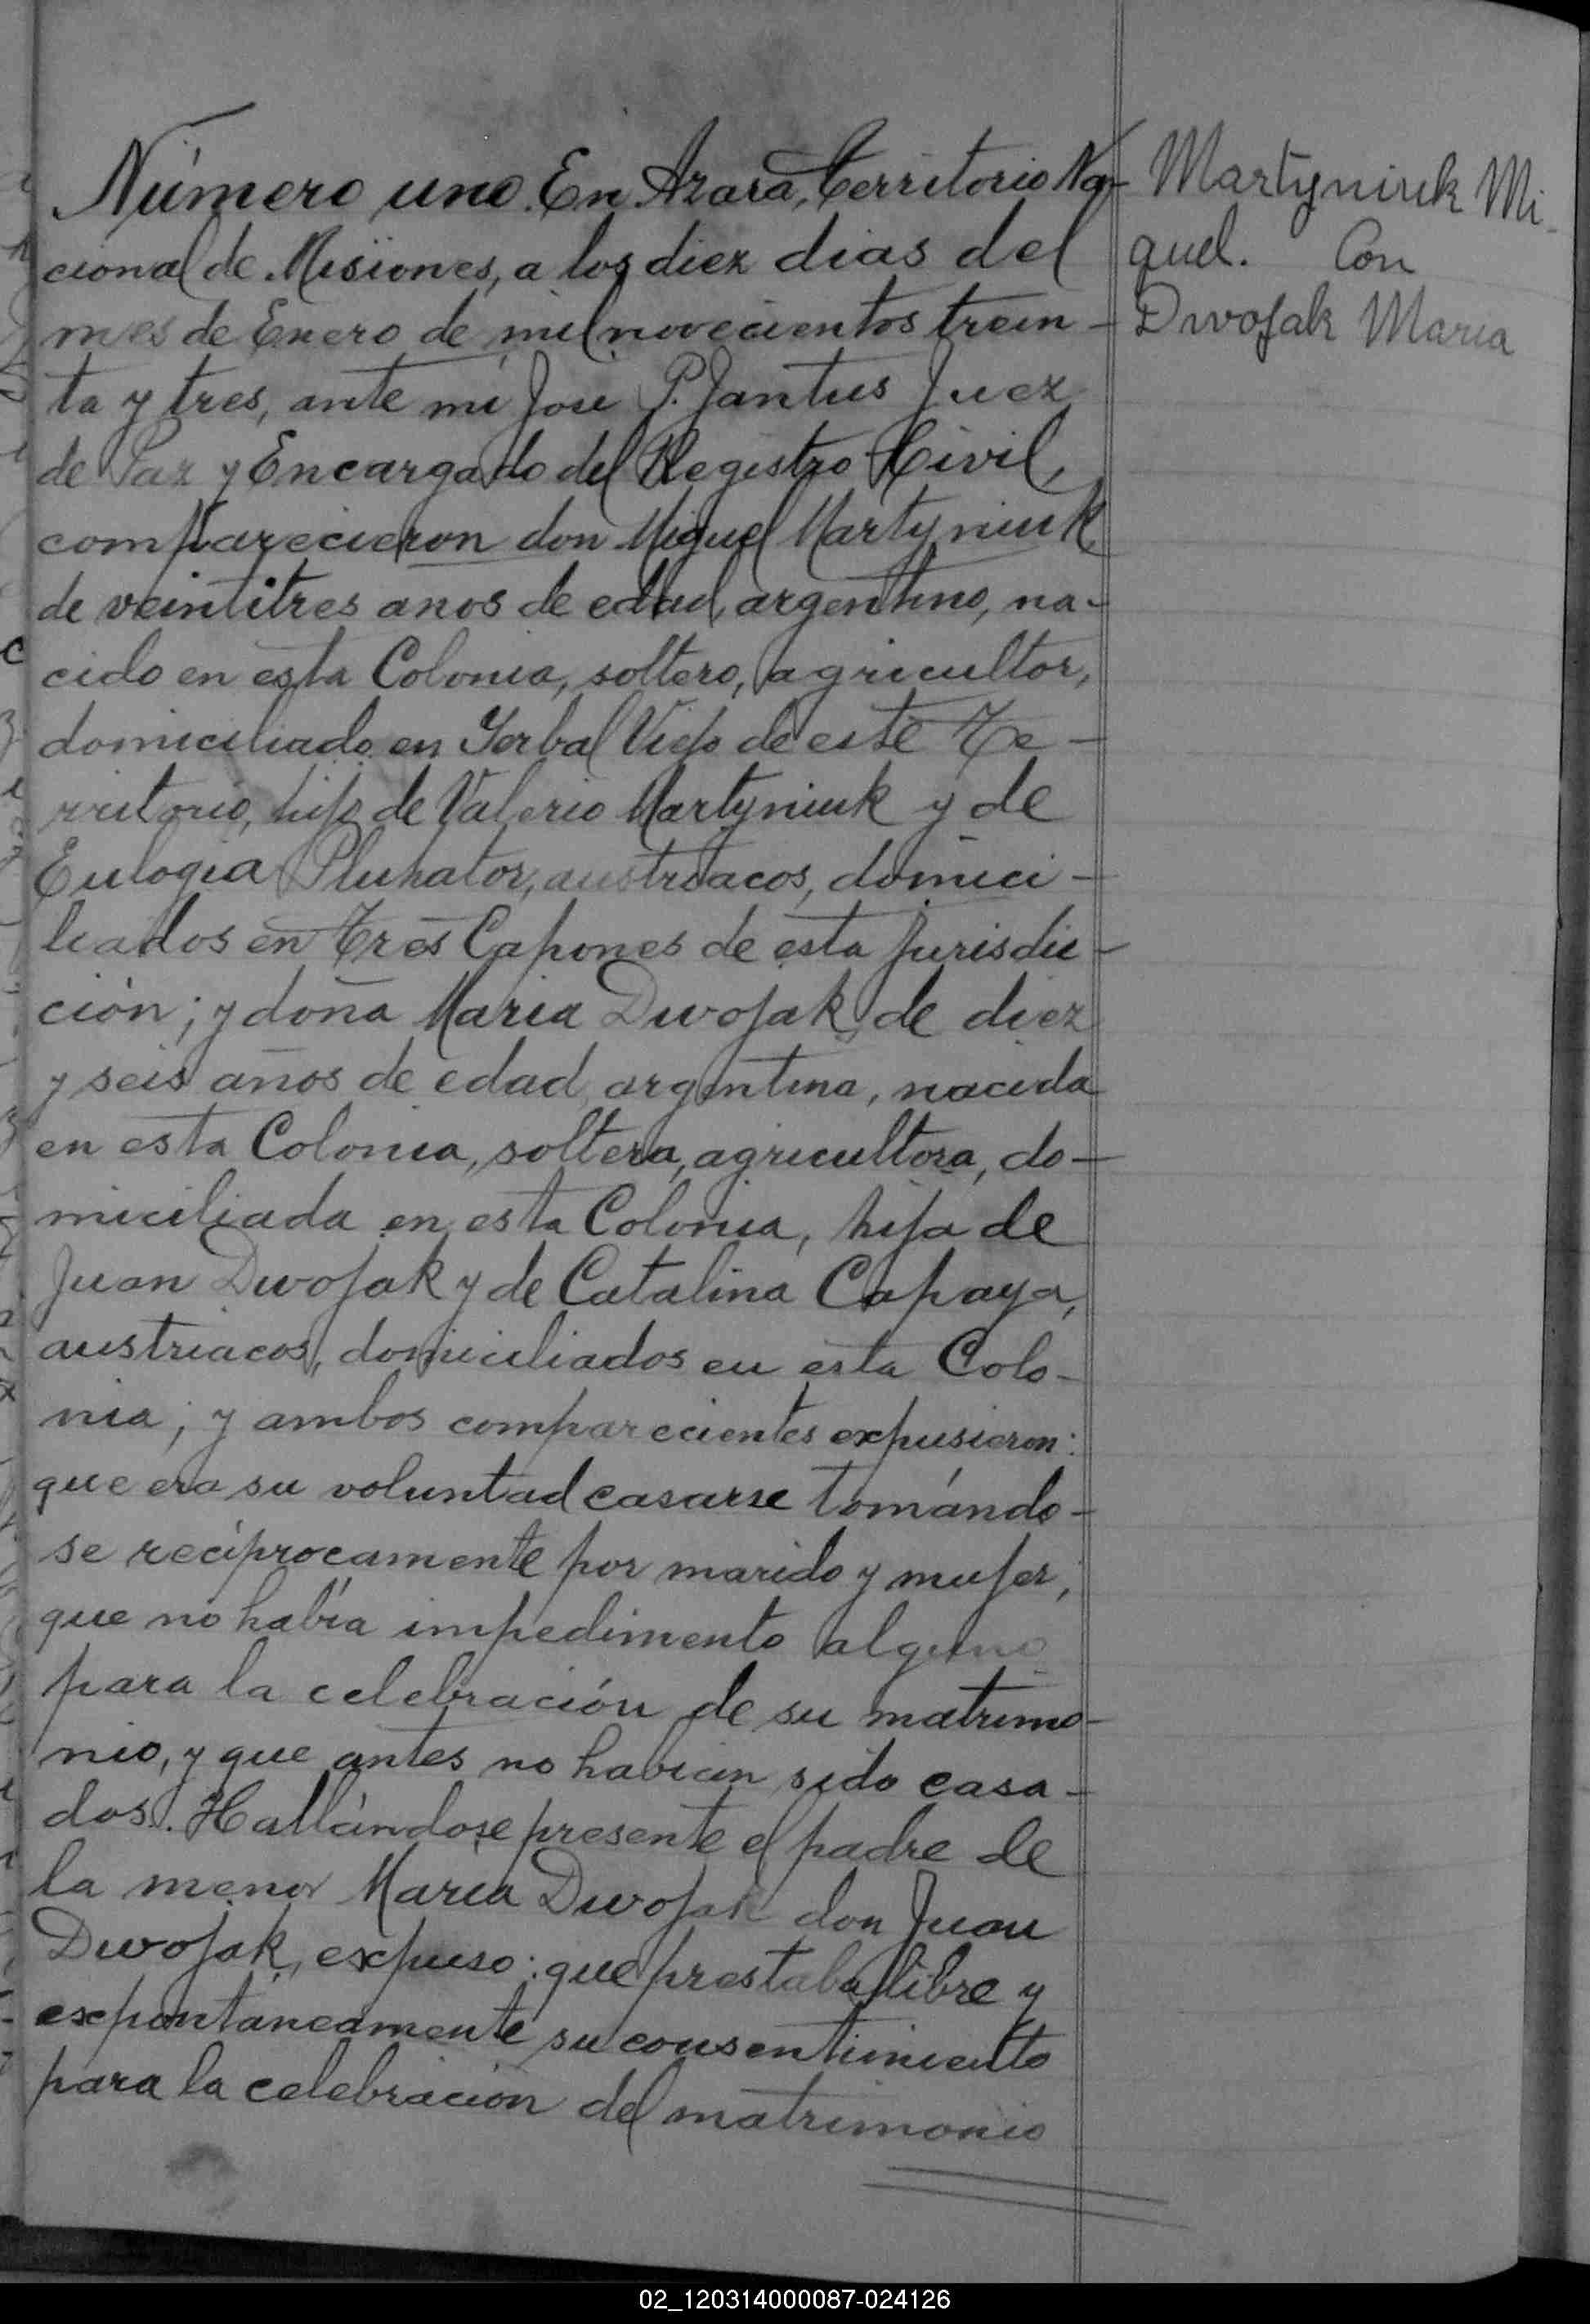 Número uno. En Azara, Territorio Na-
cional de Misiones, a los diez dias del
mes de Enero de mil novecientos trein-
ta y tres, ante mi José P. Jantus Juez
de Paz y Encargado del Registro Civil,
comparecieron don Miguel Martyniuk
de veintitres años de edad, argentino, na-
cido en esta Colonia, soltero, agricultor,
domiciliado en Yerbal Viejo de este Te-
rritorio, hijo de Valerio Martyniuk y de
Eulogia Pluhator, austriacos, domici-
liados en Tres Capones de esta Jurisdic-
ción; y doña Maria Dwojak, de diez
y seis años de edad, argentina, nacida
en esta Colonia, soltera, agricultora, do-
miciliada en esta Colonia, hija de
Juan Dwojak y de Catalina Capaya,
austriacos, domiciliados en esta Colo-
nia; y ambos comparecientes expusieron:
que era su voluntad casarse tomándo-
se recíprocamente por marido y mujer,
que no había impedimento alguno
para la celebración de su matrimo-
nio, y que antes no habian sido casa-
dos. Hallándose presente el padre de
la menor Maria Dwojak don Juan
Dwojak, expuso: que prestaba libre y
expontaneamente su consentimiento
para la celebración del matrimonio
Martyniuk Mi-
guel. Con
Dwojak Maria
02_120314000087-024126